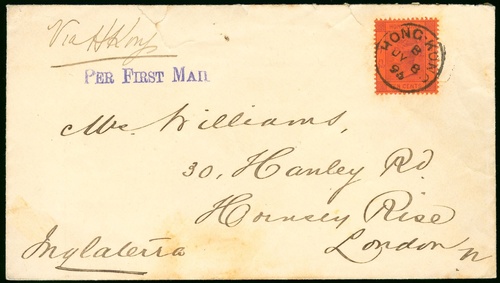 Via H Kong
PER FIRST MAIL
HONG-KONG
B
94
Mrs. Williams,
30, Hanley Rd.
Hornsey Rise
London N
Inglaterra